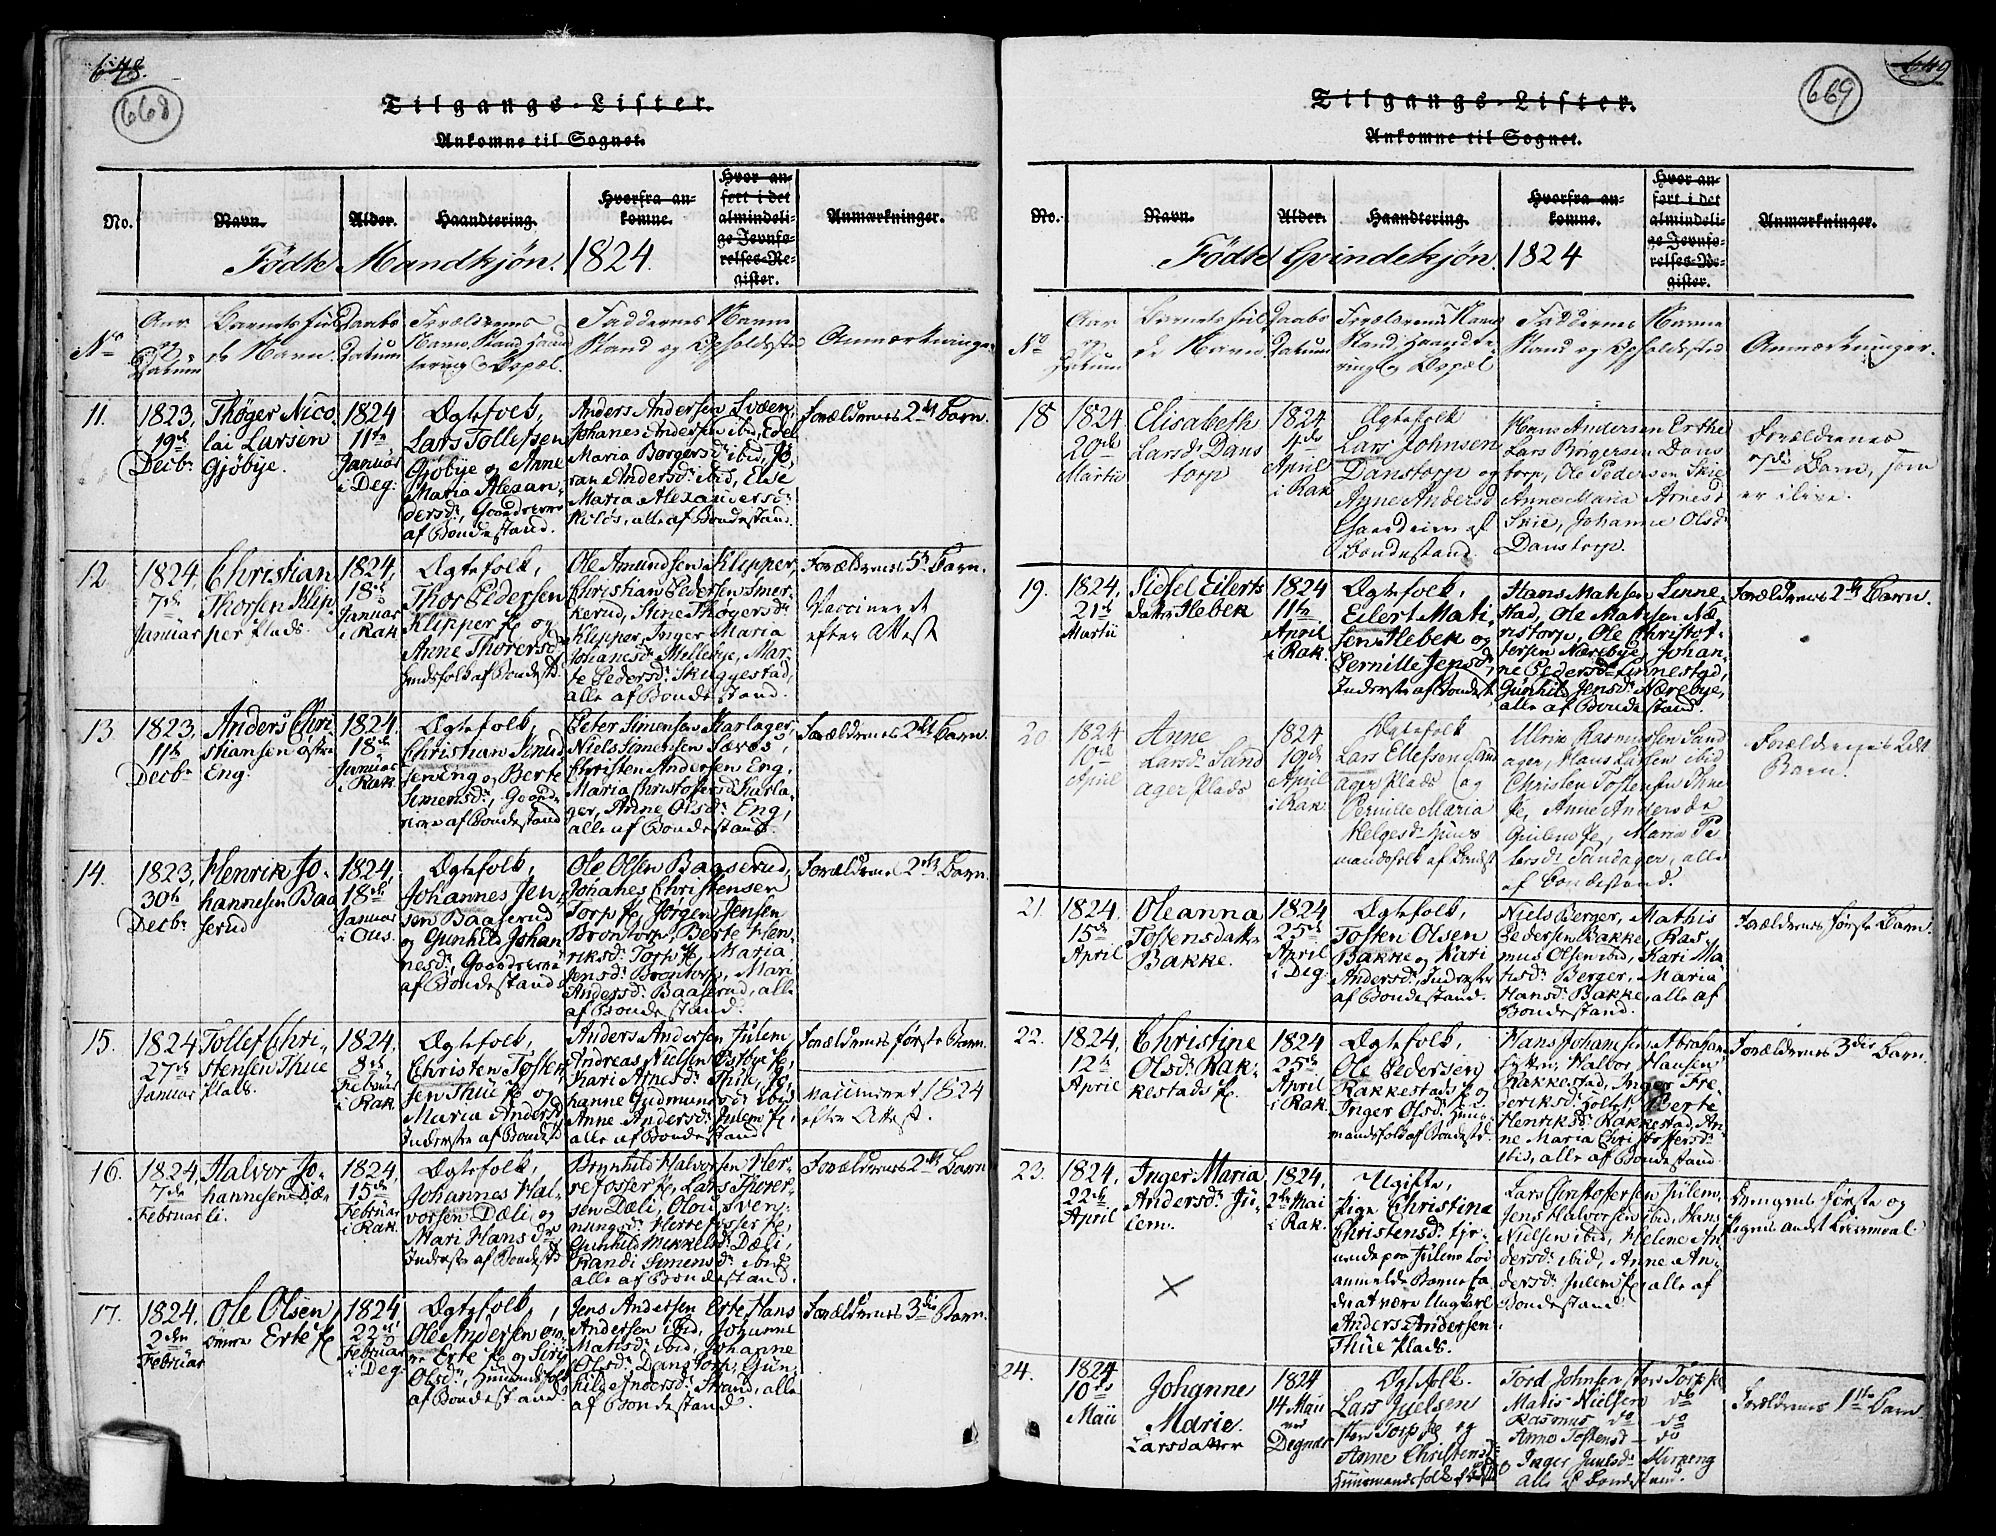 648.
668
Tilgangs-Lister.
Ankomne til Sognet.
No.
Navn.
Alder.
Haandtering.
Hvorfra an-
komne.
Hvor an-
ført i det
almindeli-
ge Jevnfø-
relses-Re-
gister.
Anmærkninger.
Födte Mandkjön. 1824.
No
Aar
og
Datum
Barnets ful
de Navn.
Daabs
Datum
Forældrenes
Navn, Stand, Haand
tering og Bopæl.
Faddernes Navne
Stand og Opholdsted
Anmærkninger
11.
1823,
19de
Decbr
Thöger Nico
lai Larsen
Gjöbye.
1824
11te
Januar
i Deg:
Ægtefolk,
Lars Tollefsen
Gjöbye og Anne
Maria Alexan
dersdr, Gaardmænd
af Bondestand.
Anders Andersen Svæen,
Johanes Andersen ibid, Edel
Maria Borgersdr ibid, Jö,
ran Andersdr ibid, Else
Maria Alexandersdr
alle af Bondestand.
Forældrenes 2det Barn.
12.
1824,
7de
Januar
Christian
Thorsen Klip
per plads.
1824,
18de
Januar
i Rak
Ægtefolk,
Thor Pedersen
Klipper pl og
Anne Thorersdr
Huusfolk af Bondestd
Ole Amundsen Klipper,
Christian Pedersen Smer-
kerud, Stine Thögersdr
Klipper, Inger Maria
Johanesdr Mellebye, Mar-
te Pedersdr Skuggestad,
alle af Bondestand.
Forældrenes 5te Barn.
Vaccineret
efter Attest
13
1823.
11te
Decbr
Anders Chri-
stiansen östre
Eng.
1824.
18de
Januar
i Rak.
Ægtefolk,
Christian Knud
sen Eng og Berte
Simensdr, Gaard
mænd af Bondestand
Peter Simensen Harlager,
Niels Simensen Særös,
Christen Andersen Eng,
Maria Christophersdr Harla-
ger, Anne Olsdr Eng,
alle af Bondestand.
Forældrenes 2det Barn
14.
1823,
30te
Decbr
Henrik Jo-
hannesen Baa
serud
1824,
18de
Januar
i Ous.
Ægtefolk,
Johannes Jen-
sen Baaserud
og Gunhild Johan
nesdr, Gaardmænd
af Bondestand
Ole Olsen Baaserud,
Johanes Christensen
Torp pl, Jörgen Jensen
Brontorp, Berte Hen-
riksdr Torp pl, Maria
Jensdr Brontorp, Mari
Andersdr Baaserud, alle
af Bondestand.
Forældrenes 2det Barn.
15.
1824
27de
Januar
Tollef Chri-
stensen Thue
plads.
1824.
8de
Februar
i Rak
Ægtefolk,
Christen Tosten
sen Thue pl og
Maria Andersdr
Inderster af Bondestd
Anders Andersen Julem,
Andreas Nielsen Östbye pl,
Kari Arnesdr Thue, Jo,
hanne Gudmunsdr ibid
Anne Andersdr Julem pl,
alle af Bondestand
Forældrenes förste Barn.
vaccineret 1824
efter Attest.
16.
1824,
7de
Februar
Halvor Jo-
hannesen Dæ-
li.
1824,
15de
Februar
i Rak.
Ægtefolk,
Johannes Hal-
vorsen Dæli og
Mari Hansdr
Inderster af Bondestd
Brynhild Halvorsen Her-
refosser pl, Lars Thorer-
sen Dæli, Olou Sven-
nungsdr Herrefosser pl,
Gunhild Mikkelsdr Dæli,
Randi Simensdr ibid
alle af Bondestand.
Forældrenes 2det Barn
17.
1824.
2den
Februar
Ole Olsen
Erte pl
1824
22de
Februar
i Deg:
Ægtefolk,
Ole Andersen
Erte pl og Siri
Olsdr, Huusmandsfolk
af Bondestand.
Jens Andersen Erte Hans
Andersen ibid, Johanne
Matisdr ibid, Johanne
Olsdr Danstorp, Gun-
hild Andersdr Strand, alle
af Bondestand.
Forældrenes 3die Barn.
649
669
Tilgangs-Lister.
Ankomne til Sognet.
No.
Navn.
Alder.
Haandtering.
Hvorfra an-
komne.
Hvor an-
ført i det
almindeli-
ge Jevnfø-
relses-Re-
gister.
Anmærkninger.
Födte Qvindekjön. 1824
No
Aar
og
Datum
Barnets ful
de Navn
Daabs
Datum
Forældrenes Navn
Stand, Haandte-
ring og Bopæl
Faddernes Navne
Stand og Opholdsted
Anmærkninger.
18
1824.
20de
Martii
Elisabeth
Larsdr Dans
torp
1824
4de
April
i Rak
Ægtefolk
Lars Johnsen
Danstorp og
Anne Andersdr
Gaardmænd af
Bondestand.
Hans Andersen Erthe
Lars Börgersen Dans
torp, Ole Pedersen Skie
Anne Maria Arnesd
Skie, Johanne Olsdr
Danstorp.
Forældrenes
Barn, som
er ilive.
19.
1824,
21de
Martii
Sidsel Eilerts
datter Hebek
1824
11te
April
i Rak.
Ægtefolk,
Eilert Mati-
sen Hebek og
Pernille Jensdr,
Inderster af Bondest
Hans Matisen Linne-
stad, Ole Matisen Næ-
ristorp, Ole Christof-
fersen Nærebye, Johan-
ne Pedersdr Linnestad,
Gunhild Jensdr Nærebye,
alle af Bondestand
Forældrenes 2det Barn.
20
1824
10de
April
Anne
Larsdr Sand
ager plads
1824
19de
April
i Rak.
Ægtefolk
Lars Ellefsen Sand
ager plads og
Pernille Maria
Helgesdr Huus
mandsfolk af Bondest
Ulrik Rasmussen Sand
ager, Hans Larsen ibid
Christen Tostensen Thue
pl, Anne Andersdr
Julem pl, Maria Pe
dersdr Sandager, alle
af Bondestand.
Forældrenes 2det
Barn.
21.
1824.
15de
April
Oleanna
Tostensdatter
Bakke.
1824.
25de
April
i Deg.
Ægtefolk,
Tosten Olsen
Bakke og Kari
Andersdr, Inderster
af Bondestand.
Niels Berger, Mathis
Pedersen Bakke, Ras-
mus Olsen ibid, Kari Ma
tisdr Berger, Maria
Hansdr Bakke, alle af
Bondestand.
Forældrenes förste Barn.
22.
1824,
12te
April
Christine
Olsdr Rak-
kestads pl.
1824
25de
April
i Rak.
Ægtefolk,
Ole Pedersen
Rakkestads pl og
Inger Olsdr Huus-
mandsfolk af Bondestd.
Hans Johansen Abraham
Halvor Hansen
Rakkestad, Inger Fre-
deriksdr Holtet, Berte
Henriksdr Rakkestad, An-
ne Maria Christoffersdr
ibid, alle af Bondestand.
Forældrenes 3die Barn
23.
1824,
22de
April
Inger Maria
Andersdr Ju-
lem.
1824,
2den Mai
i Rak.
Ugifte,
Pige Christina
Christensdr tje-
nende paa Julem lod
anmelde Barnefa
der at være Ungkarl
Anders Andersen
Thue plads.
Lars Christoffersen Julem,
Jens Halvorsen ibid, Hans
Nielsen ibid, Helene An-
dersdr ibid, Anne An-
dersdr Julem pl alle af
Bondestand
Drengens förste og
Pigens andet Leiermaal
24.
1824
10de
Maii
Johanne
Marie
Larsdatter
1824
14 Maii
ved
Degnen
Ægtefolk.
Lars Juelsen
store Torp pl og
Anne Christensdr
Huusmandsfolk af Bondestd
Tord Johnsen store Torp pl
Matis Nielsen do
Rasmus do do
Anne Tostensd - do
Inger Juulsdr Mirreng
alle af Bondestand.
Forældrenes 1ste Barn